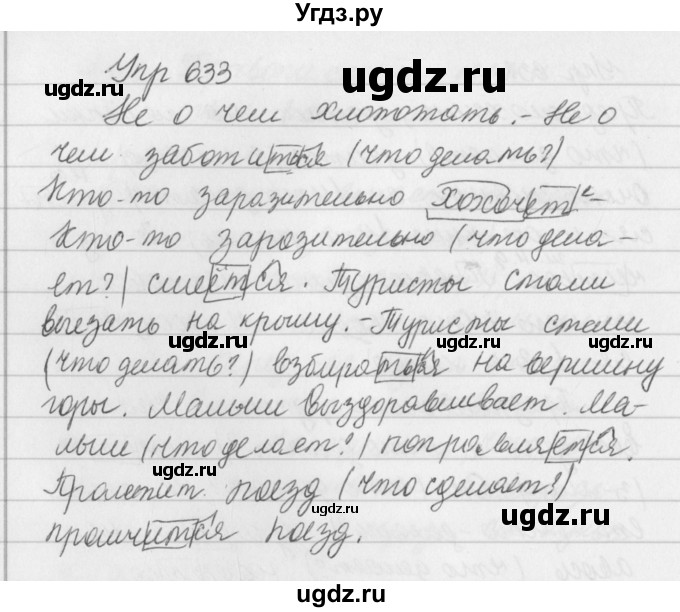 Угдз.ру
Упр 633
ugdz.ru
ugdz.ru
Не о чем хлопотать. - Не о
чем заботиться (что делать?)
ugdz.ru
Кто-то заразительно хохочет²-
Кто-то заразительно (что дела-
ugdz.ru
ет?) смеётся. Туристы стали
вылезать на крышу. - Туристы стали
ugdz.ru
ugdz.ru
(что делать?) взбираться на вершину
горы. Малыш выздоравливает. Ма-
ugdz.ru
лыш (что делает?) поправляется.
ugdz.ru
Пролетит поезд (что сделает?)
ugdz.ru
промчится поезд.
ugdz.ru
ugdz.ru